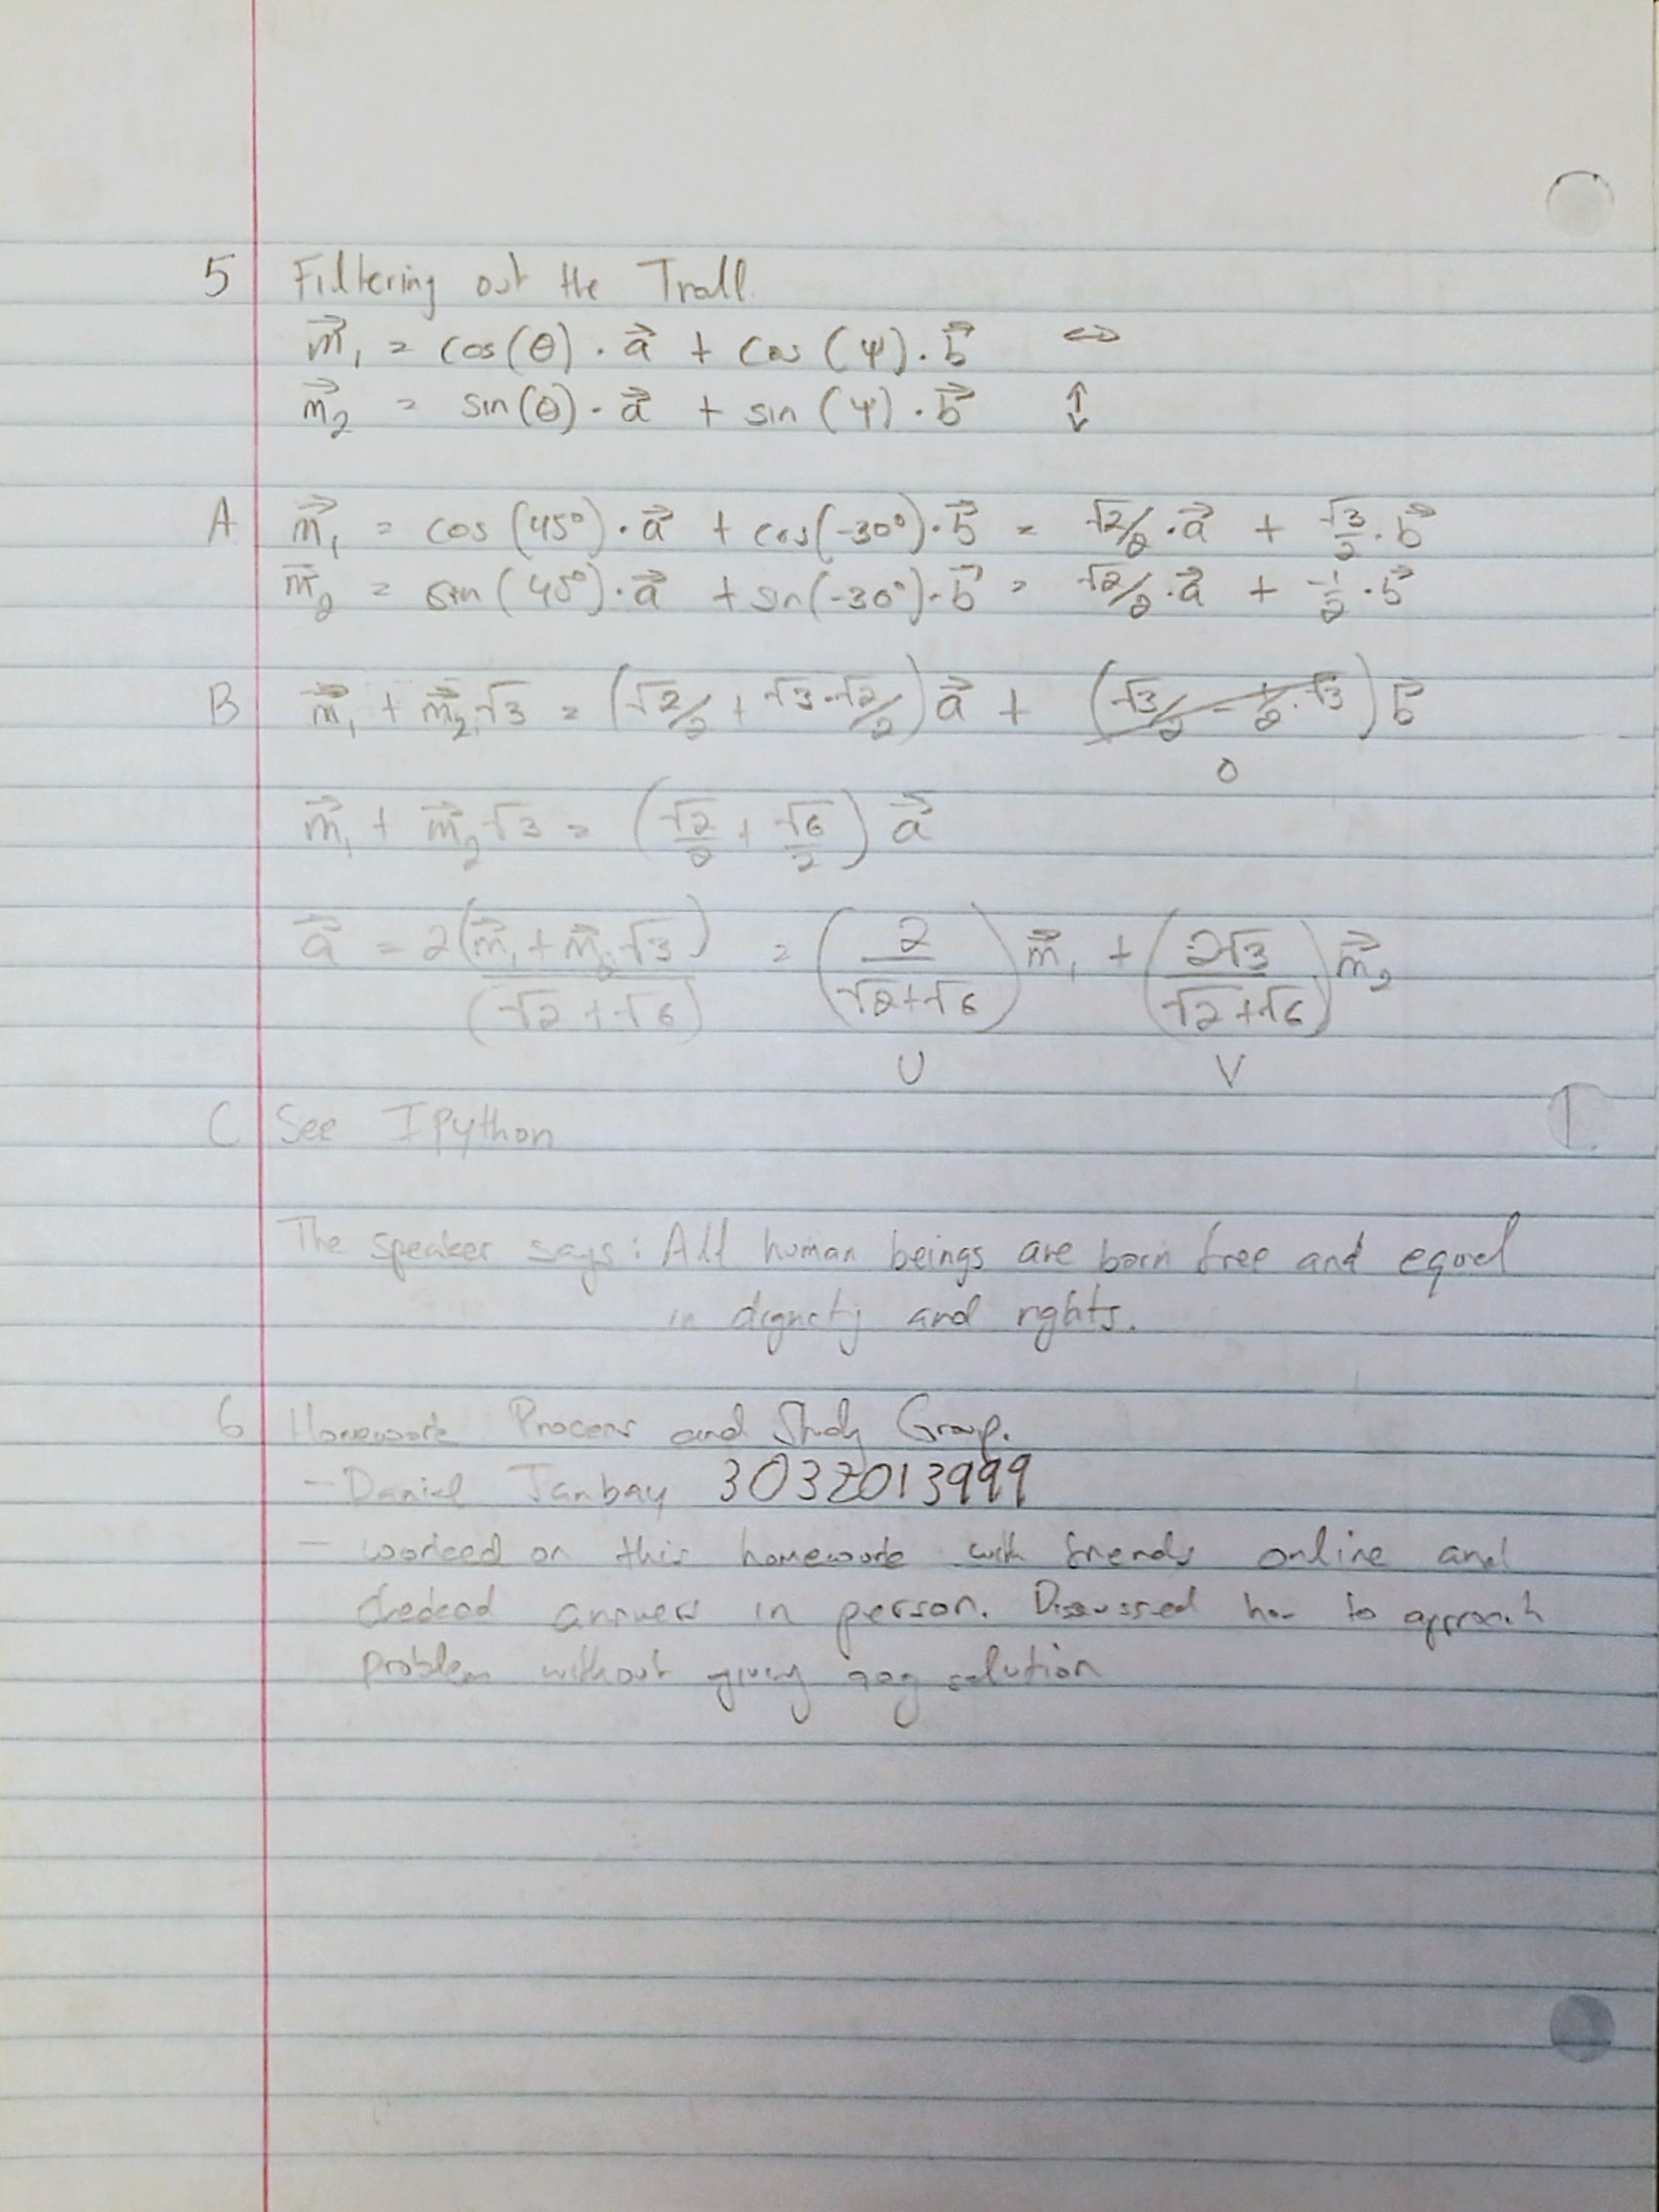 5 Filtering out the Troll.
m⃗₁ = cos(θ) · a⃗ + cos(ψ) · b⃗ ↔
m⃗₂ = sin(θ) · a⃗ + sin(ψ) · b⃗ ↕
A m⃗₁ = cos(45°) · a⃗ + cos(-30°) · b⃗ = √2/2 · a⃗ + √3/2 · b⃗
m⃗₂ = sin(45°) · a⃗ + sin(-30°) · b⃗ = √2/2 · a⃗ + -1/2 · b⃗
B m⃗₁ + m⃗₂√3 = (√2/2 + √3·√2/2) a⃗ + (√3/2 - 1/2·√3) b⃗
0
m⃗₁ + m⃗₂√3 = (√2/2 + √6/2) a⃗
a⃗ = 2(m⃗₁ + m⃗₂√3)/(√2+√6) = (2/(√2+√6)) m⃗₁ + (2√3/(√2+√6)) m⃗₂
U V
C See IPython
The speaker says: All human beings are born free and equal
in dignity and rights.
6 Homework Process and Study Group.
- Daniel Janbay 3032013999
- worked on this homework with friends online and
checked answers in person. Discussed how to approach
problem without giving solution